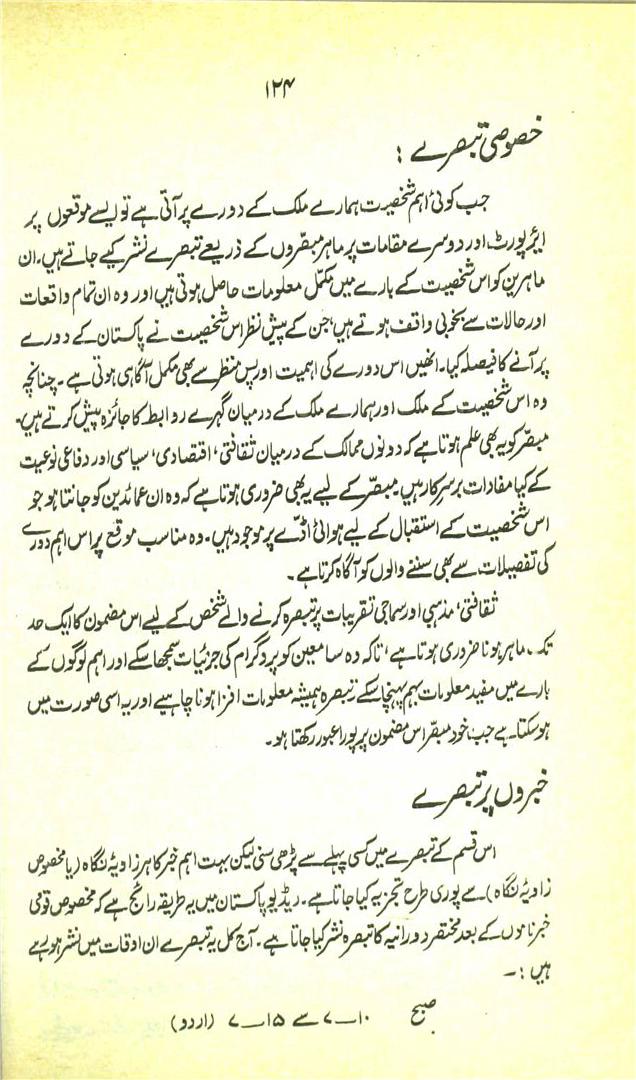 ۱۲۴
خصوصی تبصرے :
جب کوئی اہم شخصیت ہمارے ملک کے دورے پر آتی ہے تو ایسے موقعوں پر
ایئرپورٹ اور دوسرے مقامات پر ماہر مبصّروں کے ذریعے تبصرے نشر کیے جاتے ہیں۔ ان
ماہرین کو اس شخصیت کے بارے میں مکمّل معلومات حاصل ہوتی ہیں اور وہ ان تمام واقعات
اور حالات سے بخوبی واقف ہوتے ہیں، جن کے پیش نظر اس شخصیت نے پاکستان کے دورے
پر آنے کا فیصلہ کیا۔ انھیں اس دورے کی اہمیت اور پس منظر سے بھی مکمل آگاہی ہوتی ہے۔ چنانچہ
وہ اس شخصیت کے ملک اور ہمارے ملک کے درمیان گہرے روابط کا جائزہ پیش کرتے ہیں۔
مبصّر کو یہ بھی علم ہوتا ہے کہ دونوں ممالک کے درمیان ثقافتی، اقتصادی، سیاسی اور دفاعی نوعیت
کے کیا مفادات برسرِکار ہیں۔ مبصّر کے لیے یہ بھی ضروری ہوتا ہے کہ وہ ان عمائدین کو جانتا ہو جو
اس شخصیت کے استقبال کے لیے ہوائی اڈّے پر موجود ہیں۔ وہ مناسب موقع پر اس اہم دورے
کی تفصیلات سے بھی سننے والوں کو آگاہ کرتا ہے۔
ثقافتی، مذہبی اور سماجی تقریبات پر تبصرہ کرنے والے شخص کے لیے اس مضمون کا ایک حد
تک ماہر ہونا ضروری ہوتا ہے، تاکہ وہ سامعین کو پروگرام کی جزئیات سمجھا سکے اور اہم لوگوں کے
بارے میں مفید معلومات بہم پہنچا سکے۔ تبصرہ ہمیشہ معلومات افزا ہونا چاہیے اور یہ اسی صورت میں
ہو سکتا ہے جب خود مبصّر اس مضمون پر پورا عبور رکھتا ہو۔
خبروں پر تبصرے
اس قسم کے تبصرے میں کسی پہلے سے پڑھی سنی لیکن بہت اہم خبر کا ہر زاویۂ نگاہ (یا مخصوص
زاویۂ نگاہ) سے پوری طرح تجزیہ کیا جاتا ہے۔ ریڈیو پاکستان میں یہ طریقہ رائج ہے کہ مخصوص قومی
خبرناموں کے بعد مختصر دورانیہ کا تبصرہ نشر کیا جاتا ہے۔ آج کل یہ تبصرے ان اوقات میں نشر ہو رہے
ہیں :۔
صبح ۱۰—۷ سے ۱۵—۷ (اردو)